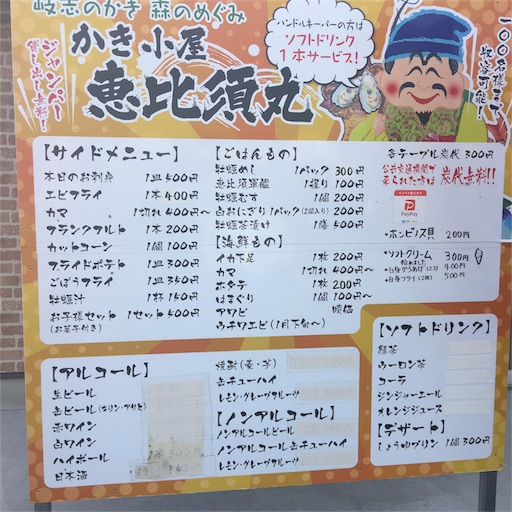 岐志のかき 森のめぐみ
かき小屋
恵比須丸
ジャンパー
貸し出し無料!
ハンドルキーパーの方は
ソフトドリンク
1本サービス!
100名様まで
収容可能!
【サイドメニュー】
本日のお刺身 1皿500円
エビフライ 1本400円
カマ 1切れ400円~
フランクフルト 1本200円
カットコーン 1個100円
フライドポテト 1皿300円
ごぼうフライ 1皿350円
牡蠣汁 1杯150円
お子様セット 1セット500円
(お菓子付き)
【ごはんもの】
牡蠣めし 1パック300円
恵比須 1握り100円
牡蠣むす 1個200円
白おにぎり 1パック(2個入り)200円
牡蠣茶漬け 1膳500円
【海鮮もの】
イカ下足 1枚200円
カマ 1切れ400円~
ホタテ 1枚200円
はまぐり 1個100円~
アワビ 時価
ウチワエビ(1月下旬~)
各テーブル炭代 300円
公共交通機関で
来られた方は 炭代無料!!
PayPay
・ホンビノス貝 200円
・ソフトクリーム 300円
始めました
・白身からあげ(2コ) 400円
・白身フライ(2枚) 500円
【アルコール】
生ビール
缶ビール(キリン・アサヒ)
赤ワイン
白ワイン
ハイボール
日本酒
焼酎(麦・芋)
缶チューハイ
レモン・グレープフルーツ
【ノンアルコール】
ノンアルコールビール
ノンアルコール缶チューハイ
レモン・グレープフルーツ
【ソフトドリンク】
緑茶
ウーロン茶
コーラ
ジンジャーエール
オレンジジュース
【デザート】
しょうゆプリン 1個300円